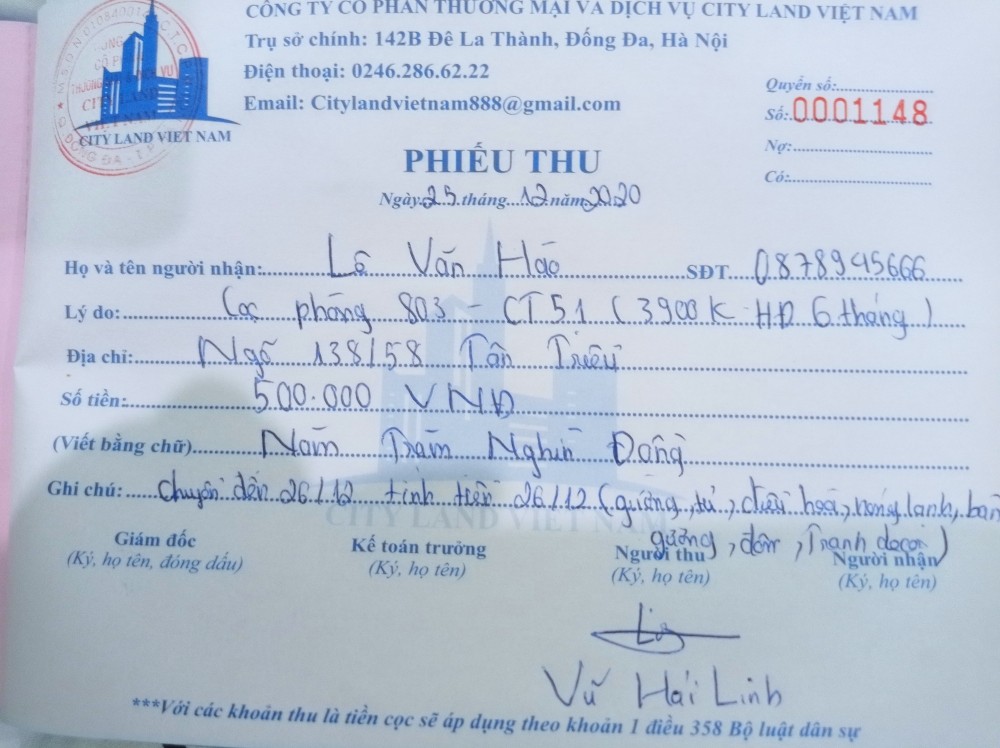 CÔNG TY CỔ PHẦN THƯƠNG MẠI VÀ DỊCH VỤ CITY LAND VIỆT NAM
Trụ sở chính: 142B Đê La Thành, Đống Đa, Hà Nội
Điện thoại: 0246.286.62.22
Email: Citylandvietnam888@gmail.com
CITY LAND VIET NAM
Quyển số:
Số: 0001148
Nợ:
Có:
PHIẾU THU
Ngày 25 tháng 12 năm 2020
Họ và tên người nhận: Lô Văn Hảo SĐT 0878945666
Lý do: Cọc phòng 803 - CT51 (3900K HĐ 6 tháng)
Địa chỉ: Ngõ 138/58 Tân Triều
Số tiền: 500.000 VNĐ
(Viết bằng chữ) Năm Trăm Nghìn Đồng
Ghi chú: Chuyển đến 26/12 tính tiền 26/12 (giường, tủ, điều hoà, nóng lạnh, bàn
gương, đôn, Tranh decor)
CITY LAND VIET NAM
Giám đốc Kế toán trưởng Người thu Người nhận
(Ký, họ tên, đóng dấu) (Ký, họ tên) (Ký, họ tên) (Ký, họ tên)
Vũ Hải Linh
***Với các khoản thu là tiền cọc sẽ áp dụng theo khoản 1 điều 358 Bộ luật dân sự